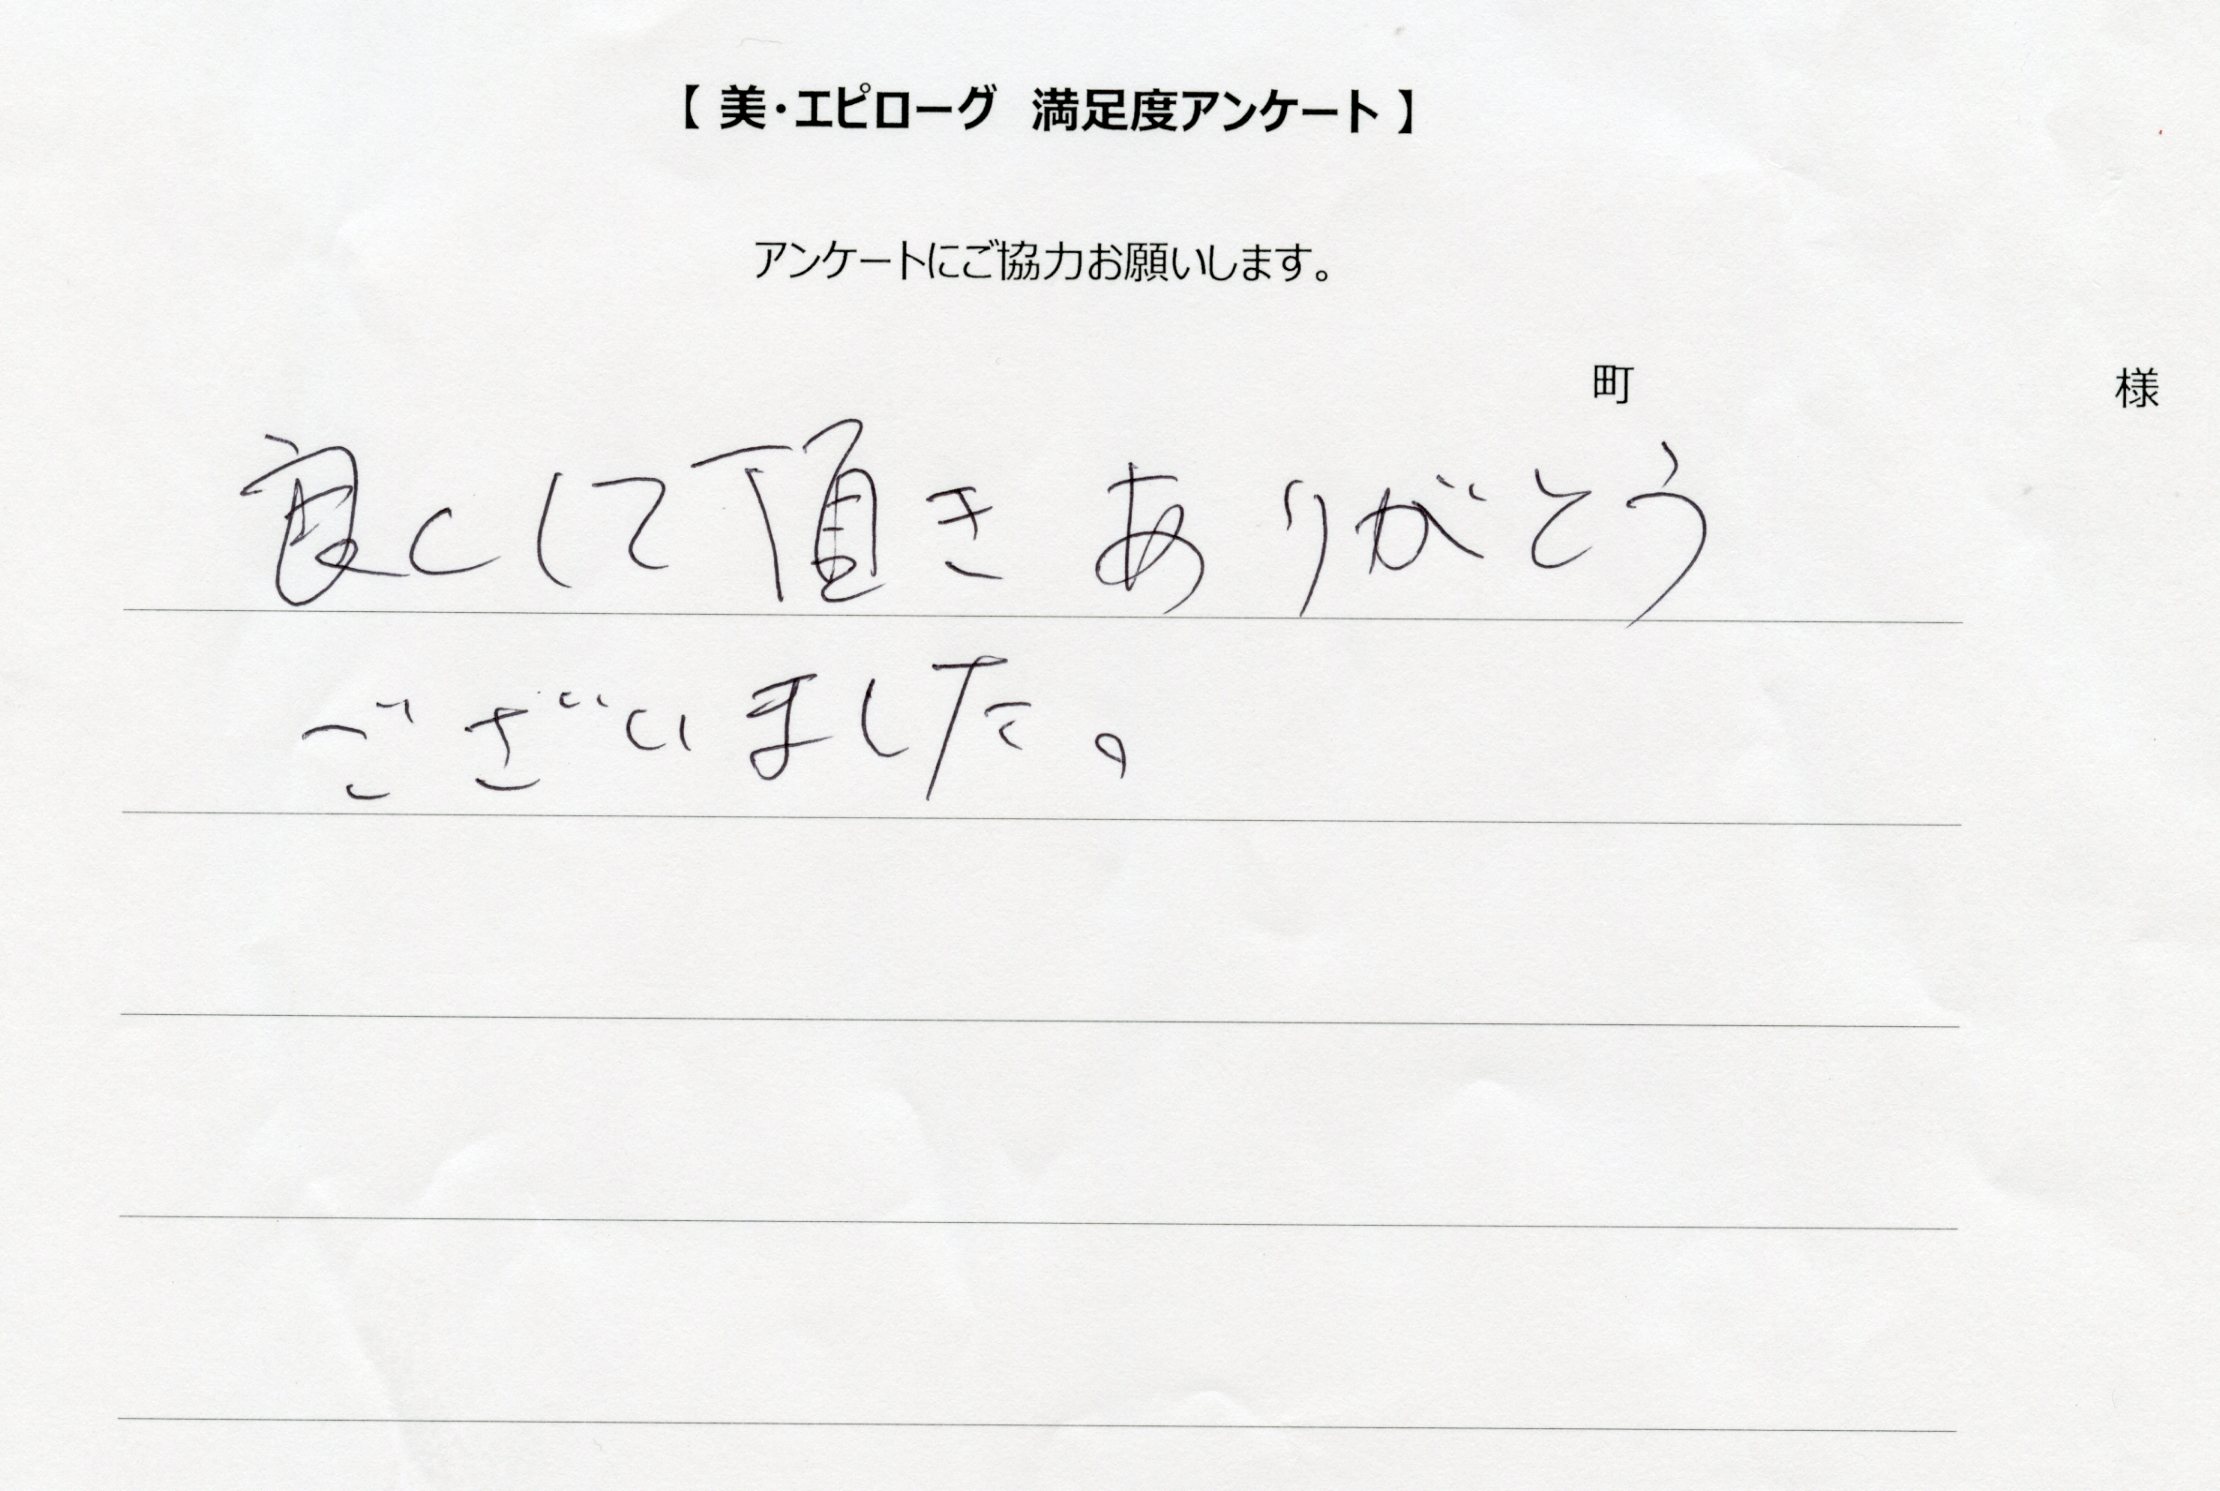 【 美・エピローグ 満足度アンケート 】
アンケートにご協力お願いします。
町 様
良くして頂きありがとう
ございました。